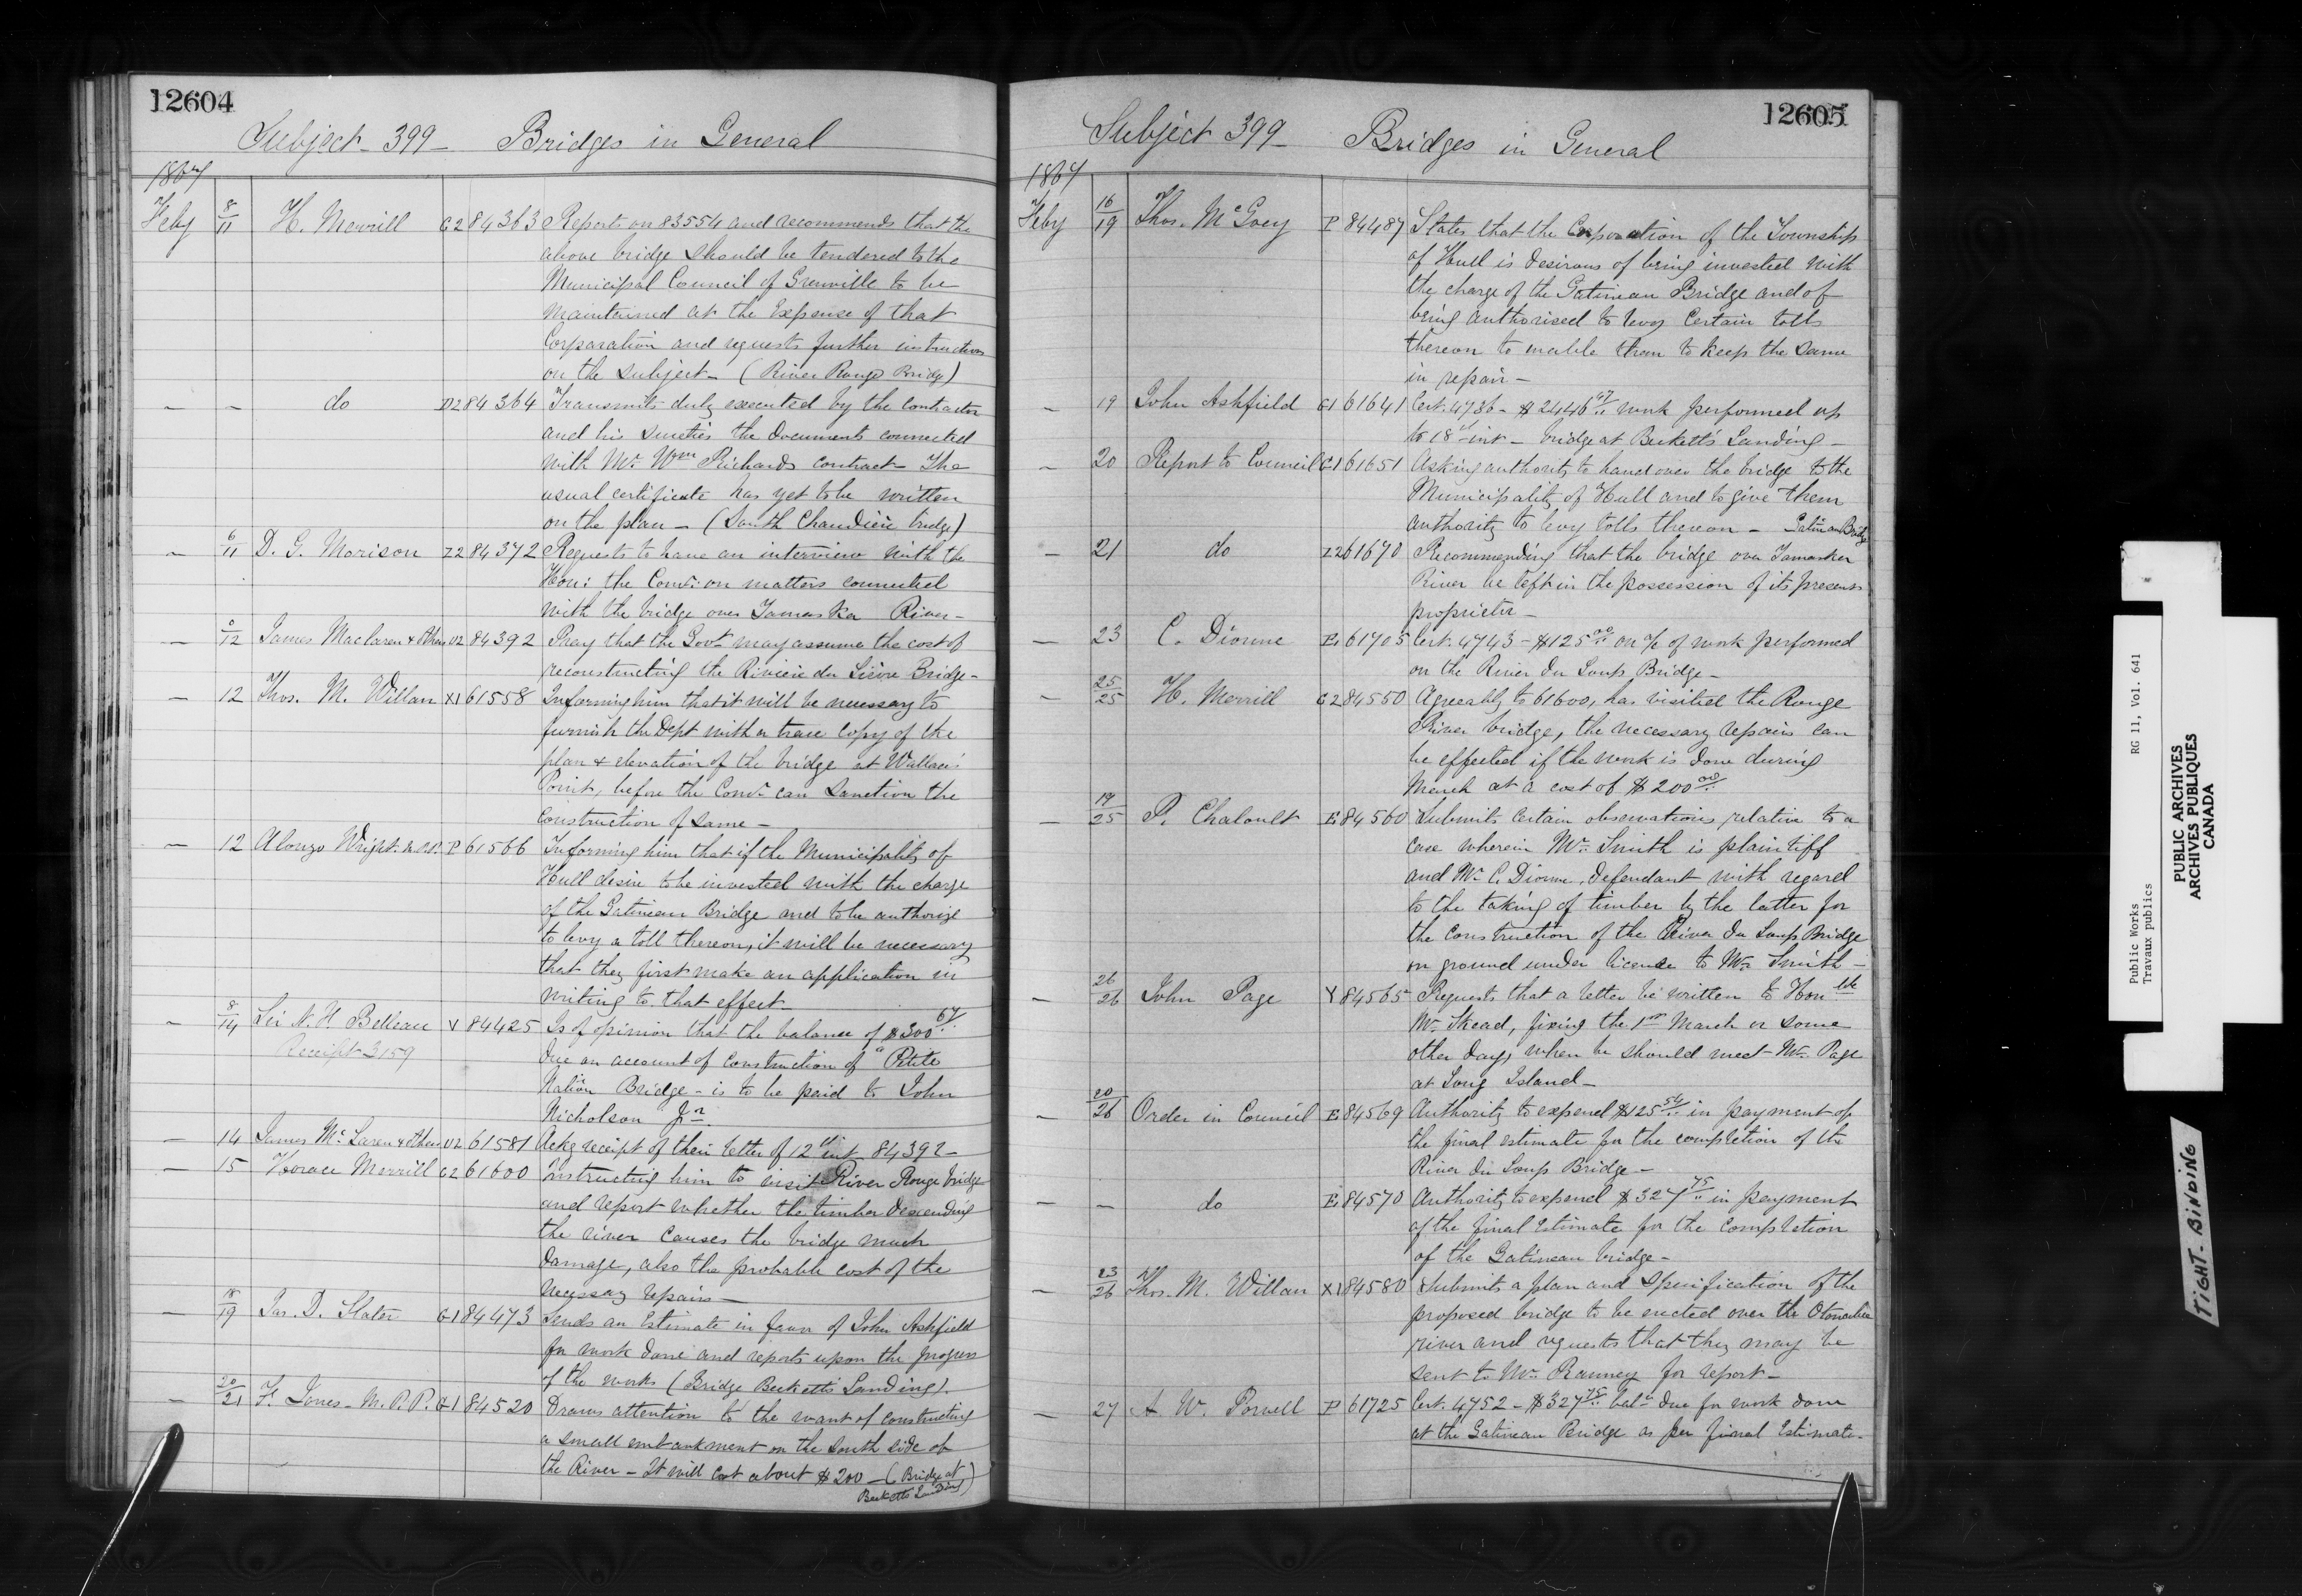 12604
Subject - 399 - Bridges in General
1867
Feby 8/11 H. Merrill G2 84363 Reports on 83554 and recommends that the
above bridge should be tendered to the
Municipal Council of Grenville to be
maintained at the Expense of that
Corporation and requests further instructions
on the subject - (River Rouge Bridge)
- - do D2 84364 Transmits duly executed by the Contractor
and his sureties the documents connected
with Mr. Wm Richards contract - The
usual certificate has yet to be written
on the plan - (South Chaudière bridge)
- 6/11 D. G. Morison Z2 84372 Requests to have an interview with the
Hon: the Comr. on matters connected
with the bridge over Yamaska River -
- /12 James Maclaren & Others U2 84392 Pray that the Govt may assume the cost of
reconstructing the Rivière du Lièvre Bridge -
- 12 Thos. M. Willan X1 61558 Informing him that it will be necessary to
furnish the Dept with a trace Copy of the
plan & elevation of the bridge at Wallace's
Point, before the Comr. can Sanction the
Construction of same -
- 12 Alonzo Wright P 61566 Informing him that if the Municipality of
Hull desire to be invested with the charge
of the Gatineau Bridge and to be authorize
to levy a toll thereon, it will be necessary
that they first make an application in
writing to that effect -
- 8/14 Sir N. F. Belleau V 84425 Is of opinion that the balance of $300 67/..
Receipt 3159 due on account of construction of "Petite
Nation Bridge - is to be paid to John
Nicholson Jr.
- 14 James McLaren & Others U2 61581 Ackg receipt of their letter of 12th inst 84392 -
- 15 Horace Merrill G2 61600 Instructing him to visit River Rouge bridge
and report whether the timber descending
the river Causes the bridge much
damage, also the probable cost of the
necessary repairs -
- 18/19 Jas. D. Slater G1 84473 Sends an Estimate in favor of John Ashfield
for work done and reports upon the progress
of the works (Bridge Becketts Landing).
- 20/21 F. Jones - M.P.P. G1 84520 Draws attention to the want of constructing
a small embankment on the south side of
the River - It will Cost about $200 - (Bridge at
Becketts Landing)
12605
Subject 399 - Bridges in General
1867
Feby 16/19 Thos. McGoey P 84487 States that the Corporation of the Township
of Hull is desirous of being invested with
the charge of the Gatineau Bridge and of
being authorised to levy Certain tolls
thereon to enable them to keep the same
in repair -
- 19 John Ashfield G1 61641 Cert. 4736 - $2446 work performed up
to 18th inst - bridge at Beckett's Landing -
- 20 Report to Council P 61651 Asking authority to hand over the bridge to the
Municipality of Hull and to give them
authority to levy tolls thereon - Gatineau Bridge
- 21 do Z2 61670 Recommending that the bridge over Yamaska
River be left in the possession of its present
proprietor -
- 23 C. Dionne E1 61705 Cert. 4743 - $125 00/.. on a/c of work performed
on the River du Loup Bridge -
- 25/25 H. Merrill G2 84550 Agreeably to 61600, has visited the Rouge
River bridge, the necessary repairs can
be effected if the work is done during
March at a cost of $200 00/..
- 19/25 P. Chaloult E1 84560 Submits Certain observations relative to a
case wherein Mr. Smith is plaintiff
and Mr C. Dionne, defendant with regard
to the taking of timber by the latter for
the Construction of the River du Loup Bridge
on ground under license to Mr. Smith -
- 26/26 John Page Y 84565 Requests that a letter be written to Honble
Mr. Skead, fixing the 1st March or some
other day, when he should meet Mr. Page
at Long Island -
- 20/26 Order in Council E 84569 Authority to expend $125 54/.. in payment of
the final estimate for the completion of the
River du Loup Bridge -
- - do E1 84570 Authority to expend $327 75/.. in payment
of the final Estimate for the Completion
of the Gatineau bridge -
- 23/26 Thos. M. Willan X1 84580 Submits a plan and Specification of the
proposed bridge to be erected over the Otonabee
river and requests that they may be
sent to Mr. Ranney for report -
- 27 A. W. Powell P 61725 Cert. 4752 - $327 75/.. balce due for work done
at the Gatineau Bridge as per final Estimate -
Public Works
Travaux publics
RG 11, Vol. 641
PUBLIC ARCHIVES
ARCHIVES PUBLIQUES
CANADA
TIGHT-BINDING